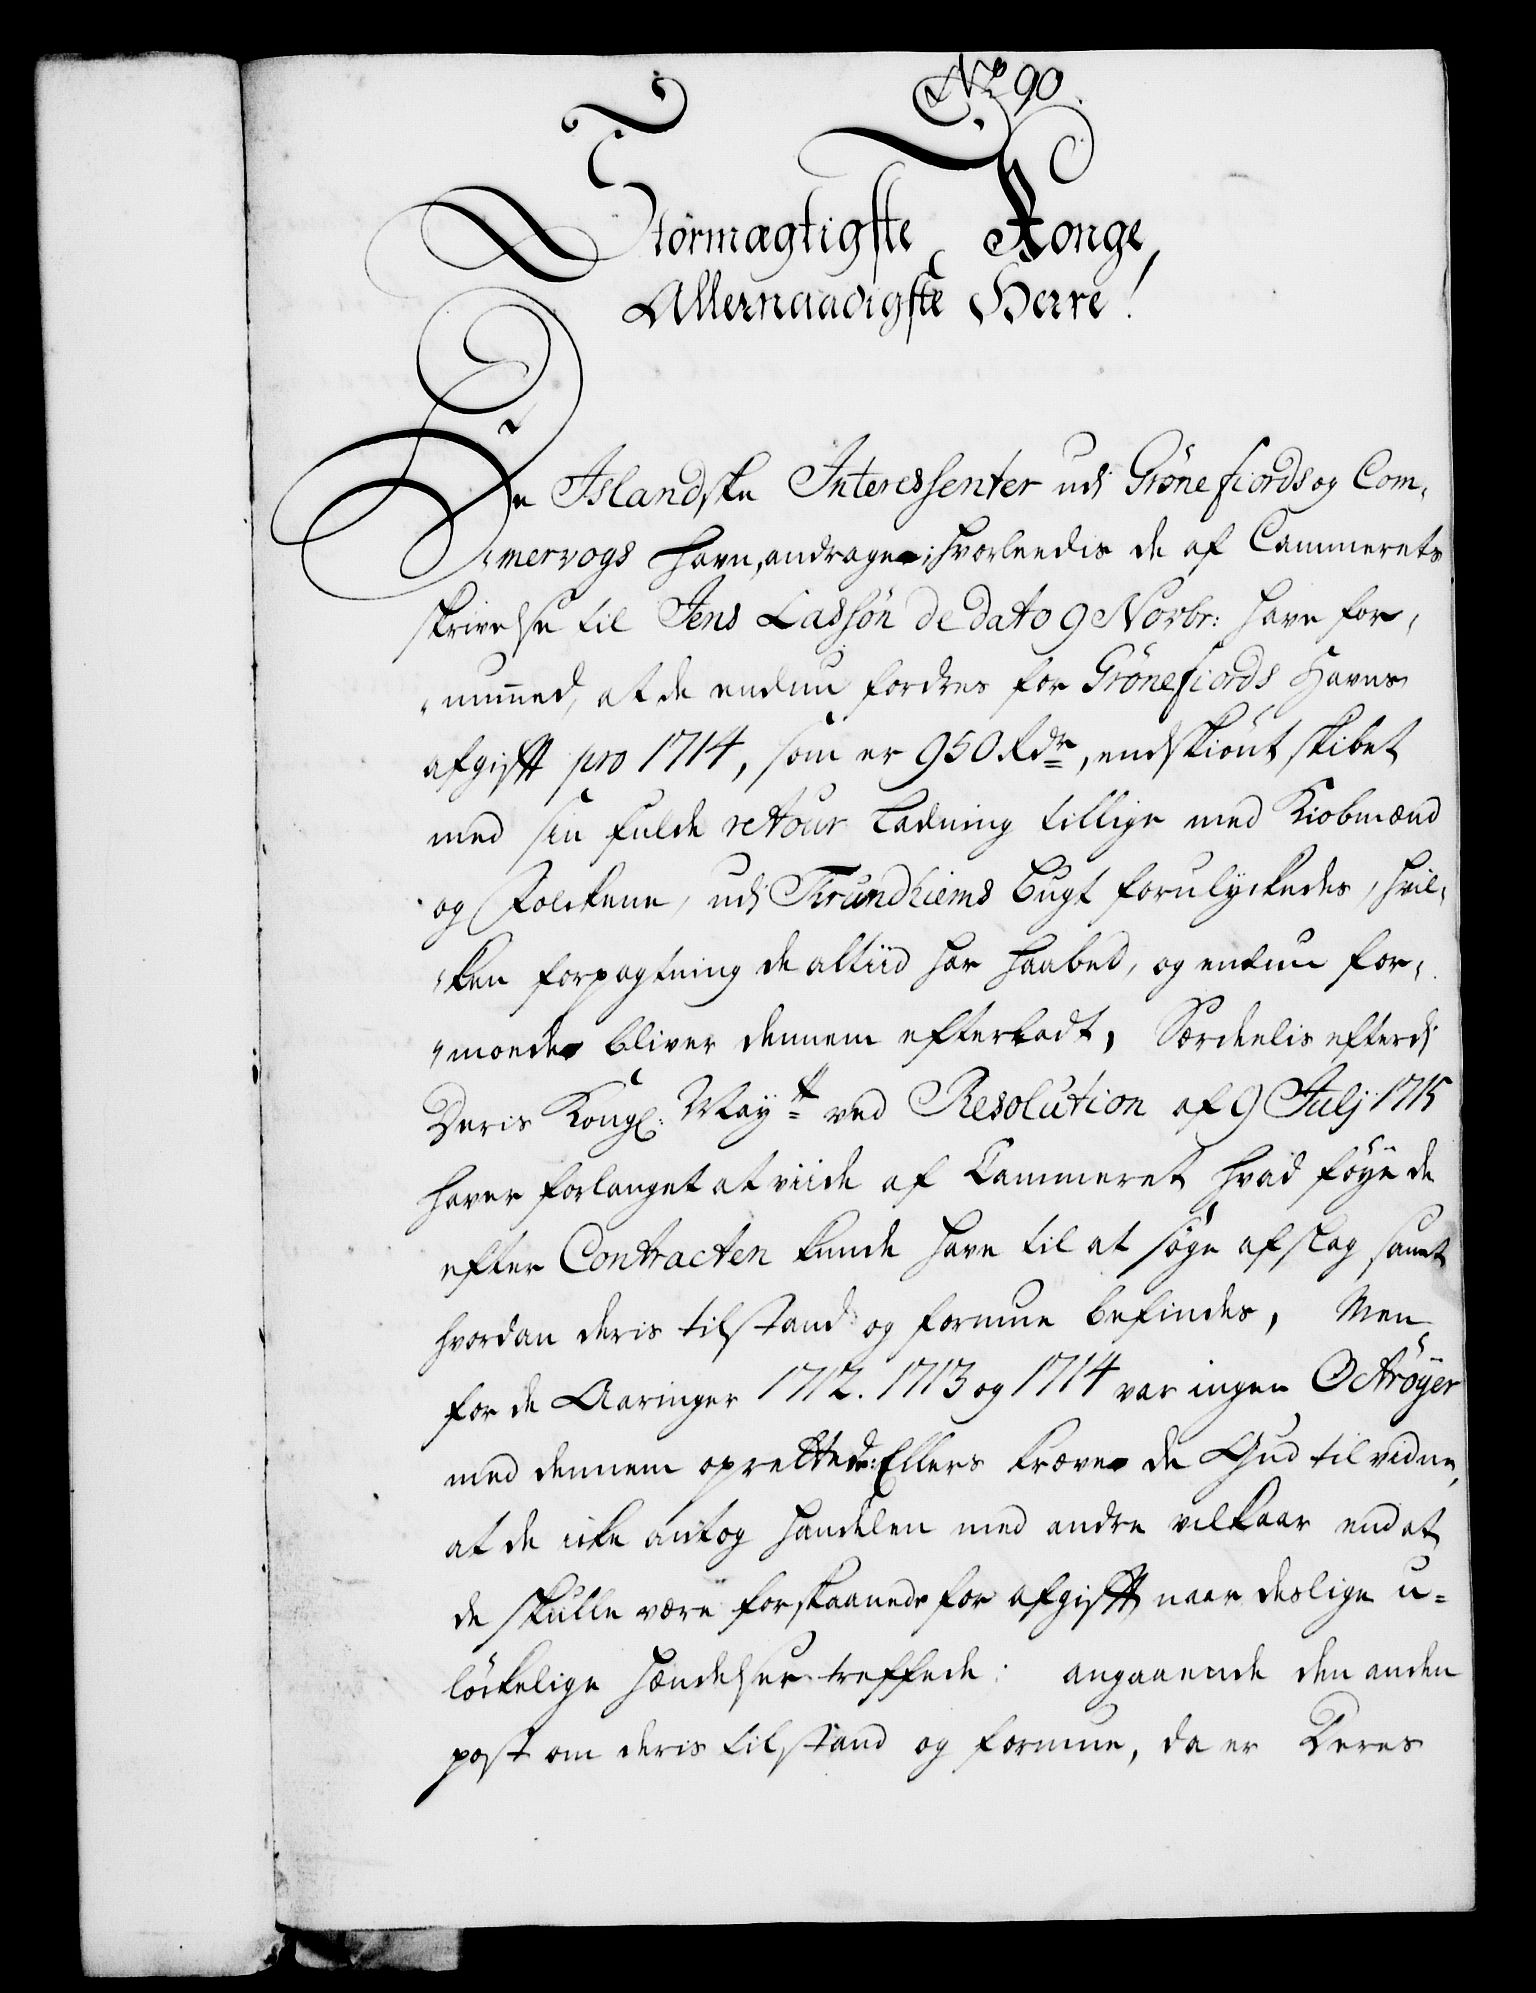 No 90.
Stormægtigste Konge,
Allernaadigste Herre!
De Islandske Interessenter udj Grönefiords og Com¸
¸mervogs Havn, andrager, hvorleedis de af Cammerets
skrivelse til Jens Lassön de dato 9 Novbr: have for¸
¸nummed, at de endnu fordres for Grönefiords Havns
afgifft pro 1714, som er 950 Rdr, endskiönt skibet
med sin fulde retour Ladning tillige med Kiobmænd
og Folckene, udj Trundhiems Bugt forulyckedes, hvil¸
¸ken forpagtning de altiid har haabed, og endnu for¸
¸moeder bliver dennem efterladt, Særdeelis efterdj
Deris Kongl: Maytt ved Resolution af 9 Julj 1715
haver forlanget at viide af Cammeret hvad föye de
efter Contracten kunde have til at söge afslag samt
hvordan deris tilstand og formue befindes, Men
for de Aaringer 1712. 1713 og 1714 var ingen Octröyer
med dennem oprettede: Ellers kræver de Gud til vidne,
at de icke antog handelen med andre vilkaar end at
de skulle være forskaanede for afgifft naar deslige u=
löckelige hændelser treffede: angaaende den anden
post om deris tilstand og formue, da er Deres